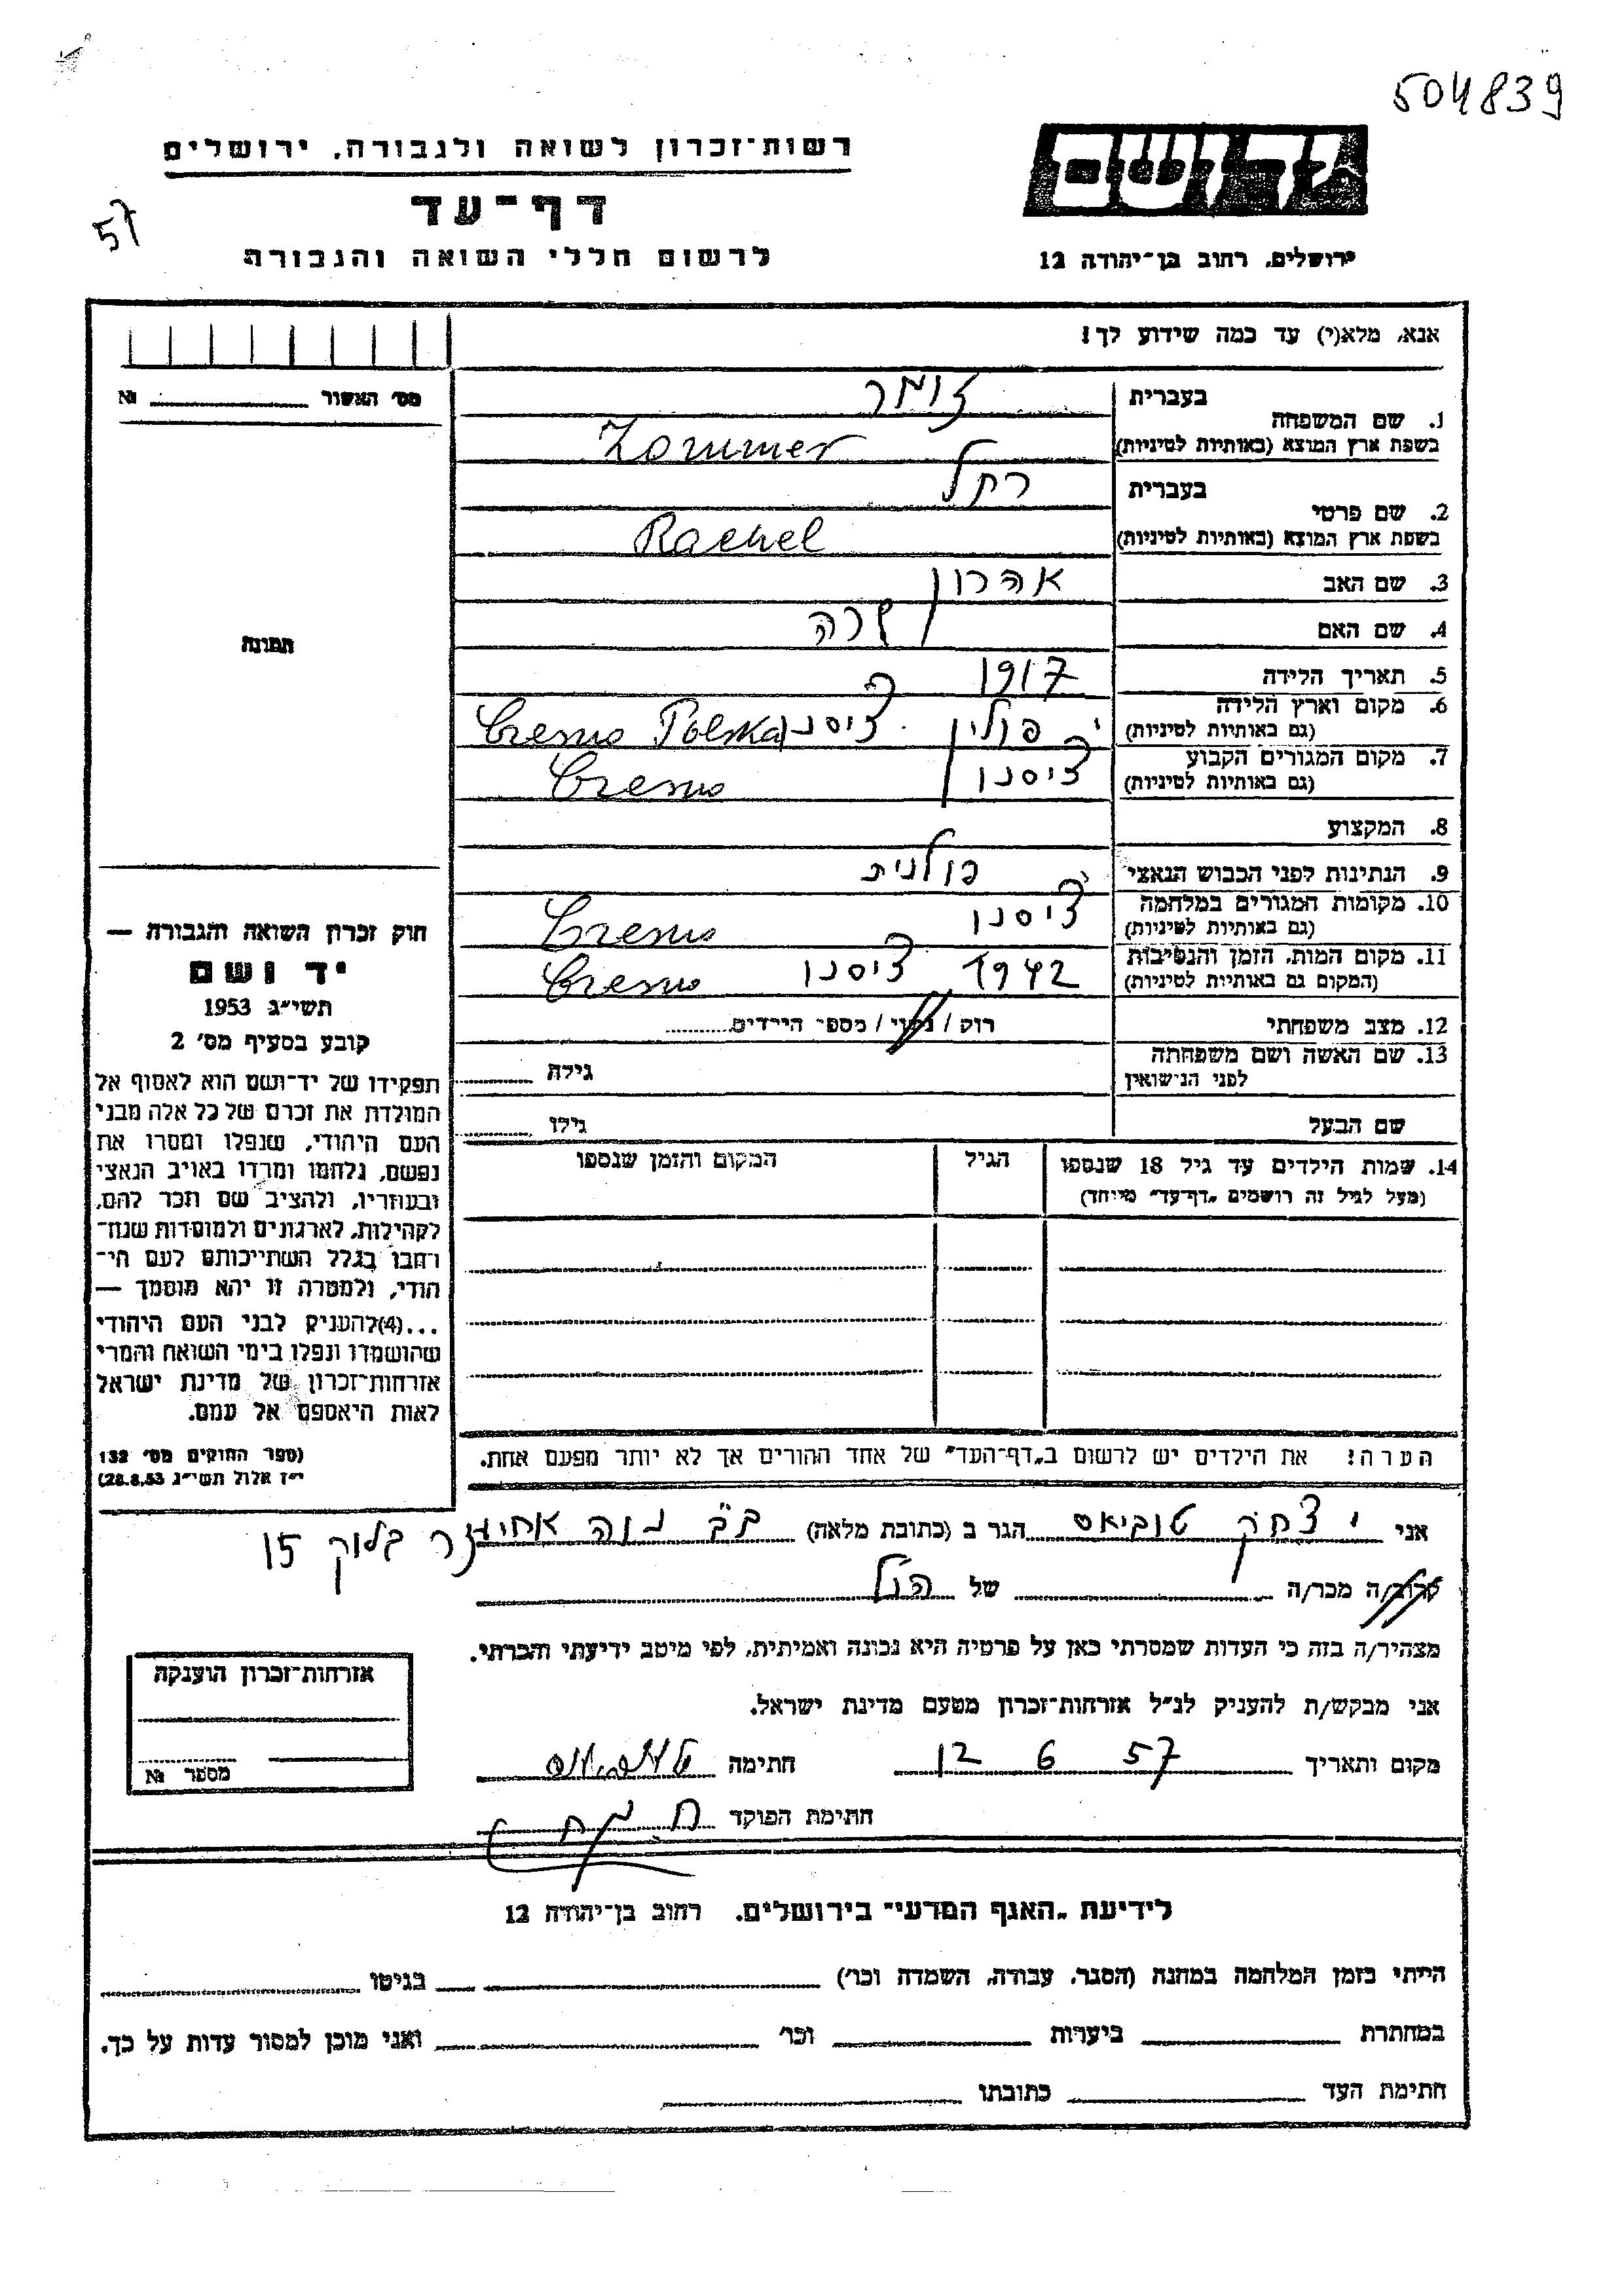 504839
רשות־זכרון לשואה ולגבורה, ירושלים
דף־עד
לרשום חללי השואה והגבורה
57
ירושלים, רחוב בן־יהודה 12
אנא, מלא(י) עד כמה שידוע לך!
מס׳ האשור № 
1. שם המשפחה
בעברית זומר
בשפת ארץ המוצא (באותיות לטיניות) Zommer
2. שם פרטי
בעברית רחל
בשפת ארץ המוצא (באותיות לטיניות) Rachel
3. שם האב אהרון
4. שם האם שרה
תמונה
5. תאריך הלידה 1917
6. מקום וארץ הלידה פולין צ'יסנו Cresno Polska
(גם באותיות לטיניות)
7. מקום המגורים הקבוע צ'יסנו Cresno
(גם באותיות לטיניות)
8. המקצוע
9. הנתינות לפני הכבוש הנאצי פולנית
10. מקומות המגורים במלחמה צ'יסנו Cresno
(גם באותיות לטיניות)
11. מקום המות, הזמן והנסיבות 1942 צ'יסנו Cresno
(המקום גם באותיות לטיניות)
12. מצב משפחתי רווק / נשוי / מספר הילדים
13. שם האשה ושם משפחתה
לפני הנישואין גילה
שם הבעל גילו
14. שמות הילדים עד גיל 18 שנספו הגיל המקום והזמן שנספו
(מעל לגיל זה רושמים „דף־עד״ מיוחד)
הערה: את הילדים יש לרשום ב„דף־העד״ של אחד ההורים אך לא יותר מפעם אחת.
חוק זכרון השואה והגבורה —
יד ושם
תשי״ג 1953
קובע בסעיף מס׳ 2
תפקידו של יד־ושם הוא לאסוף אל
המולדת את זכרם של כל אלה מבני
העם היהודי, שנפלו ומסרו את
נפשם, נלחמו ומרדו באויב הנאצי
ובעוזריו, ולהציב שם וזכר להם,
לקהילות, לארגונים ולמוסדות שנח־
רבו בגלל השתייכותם לעם הי־
הודי, ולמטרה זו יהא מוסמך —
...(4) להעניק לבני העם היהודי
שהושמדו ונפלו בימי השואה והמרי
אזרחות־זכרון של מדינת ישראל
לאות היאספם אל עמם.
(ספר החוקים מס׳ 132
י״ז אלול תשי״ג 28.8.53)
אני יצחק טוביאס הגר ב (כתובת מלאה) ב"ב נוה אחיעזר בלוק 15
קרוב/ה מכר/ה של הנ"ל
מצהיר/ה בזה כי העדות שמסרתי כאן על פרטיה היא נכונה ואמיתית, לפי מיטב ידיעתי והכרתי.
אני מבקש/ת להעניק לנ״ל אזרחות־זכרון מטעם מדינת ישראל.
מקום ותאריך 12 6 57 חתימה
חתימת הפוקד
אזרחות־זכרון הוענקה
מספר №
לידיעת „האגף המדעי״ בירושלים, רחוב בן־יהודה 12
הייתי בזמן המלחמה במחנה (הסגר, עבודה, השמדה וכו׳) בגיטו
במחתרת ביערות וכו׳ ואני מוכן למסור עדות על כך.
חתימת העד כתובתו